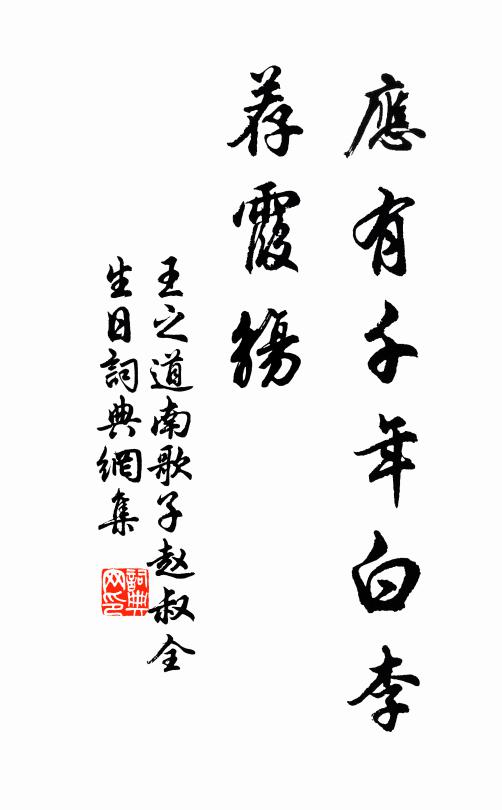 應有千年白李
荐霞觴
王之道南歌子赵叔全
生日詞典網集
詞典网印